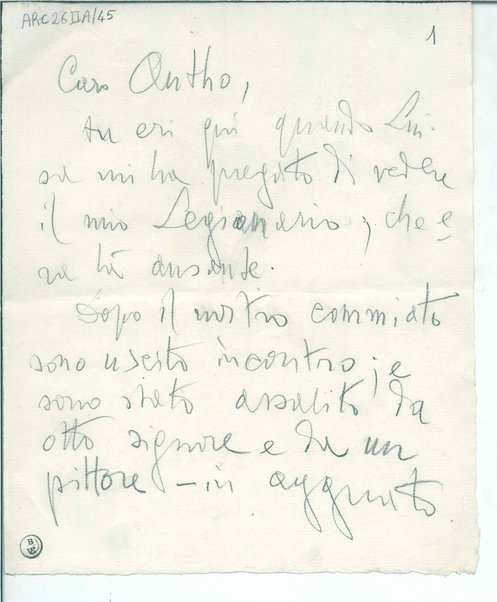 ARC 26 II A/45
1
Caro Antho,
tu eri qui quando Lui-
sa mi ha pregato di vedere
il mio Legionario, che e-
ra là ansante.
Dopo il nostro commiato
sono uscito incontro; e
sono stato assalito da
otto signore e da un
pittore – in agguato